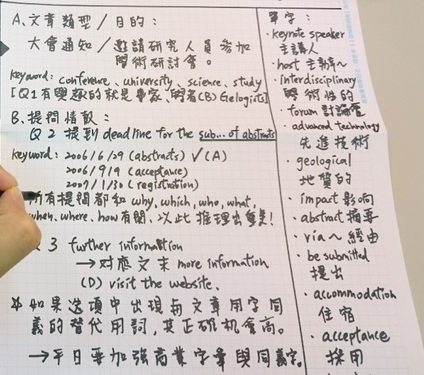 A. 文章類型／目的：
大會通知／邀請研究人員參加
學術研討會。
keyword: conference, university, science, study
[Q1有興趣的就是專家，學者(B) Geologists]
B. 提問情報：
Q 2 提到deadline for the sub... of abstracts
keyword: 2006/6/29 (abstracts) ✓(A)
2006/9/9 (acceptance)
2007/1/30 (registration)
所有提問都和 why, which, who, what,
when, where, how有關，以此推理出重點！
3 further information
→對應文末 more information
(D) visit the website.
☆ 如果選項中出現與文章用字同
義的替代用詞，其正確機會高。
→平日要加強商業字彙與同義字。
單字：
・keynote speaker
主講人
・host 主辦～
・interdisciplinary
學術性的
・forum 討論會
・advanced technology
先進技術
・geological
地質的
・impact 影響
・abstract 摘要
・via～ 經由
・be submitted
提出
・accommodation
住宿
・acceptance
採用